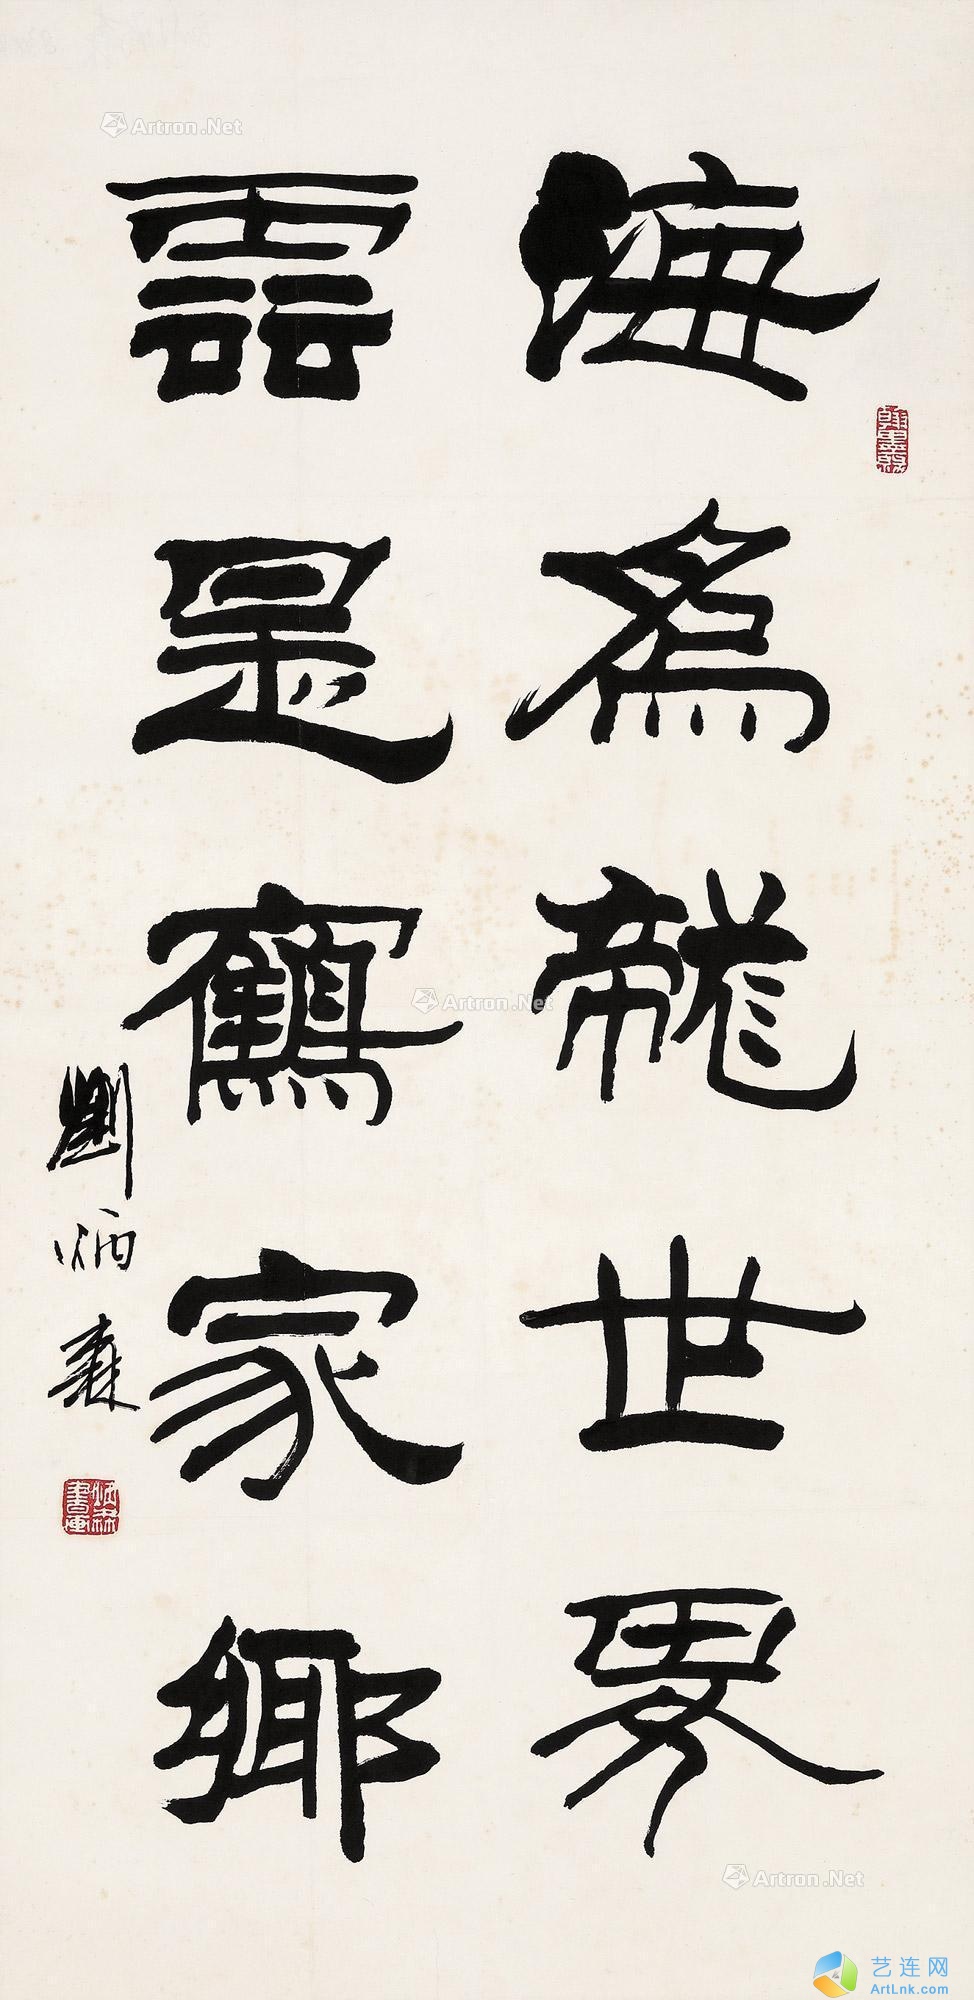 海為龍世界
雲是鶴家鄉
劉炳森
炳森書畫
Artron.Net
Artron.Net
Artron.Net
艺连网
ArtLnk.com